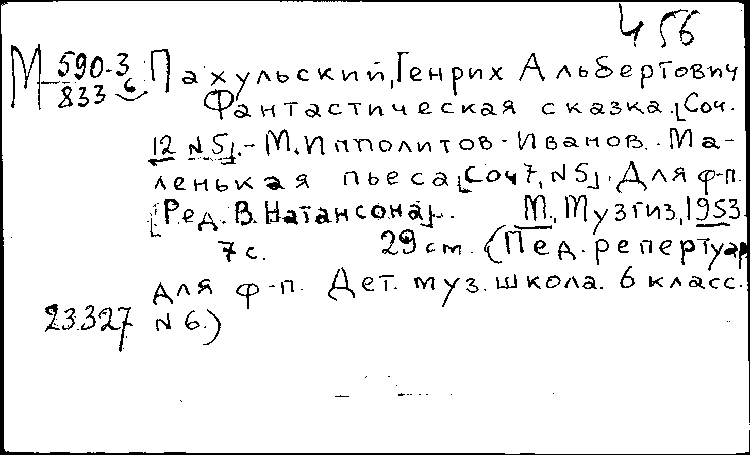 4 56
М 590-3 Пахульский, Генрих Альбертович
833 6 Фантастическая сказка. [Соч.
12 N 5]. - М. Ипполитов-Иванов. Ма-
ленькая пьеса [Соч 7, N 5]. Для ф-п.
[Ред. В. Натансона]. М., Музгиз, 1953.
7 с. 29 см. (Пед. репертуар
для ф-п. Дет. муз. школа. 6 класс.
23327 N 6.)